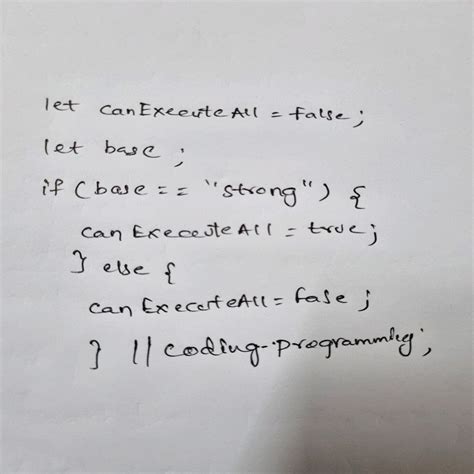 let canExecuteAll = false;
let base ;
if (base == "strong") {
can ExecuteAll = true;
} else {
can ExecuteAll = fase ;
} // coding-programming;